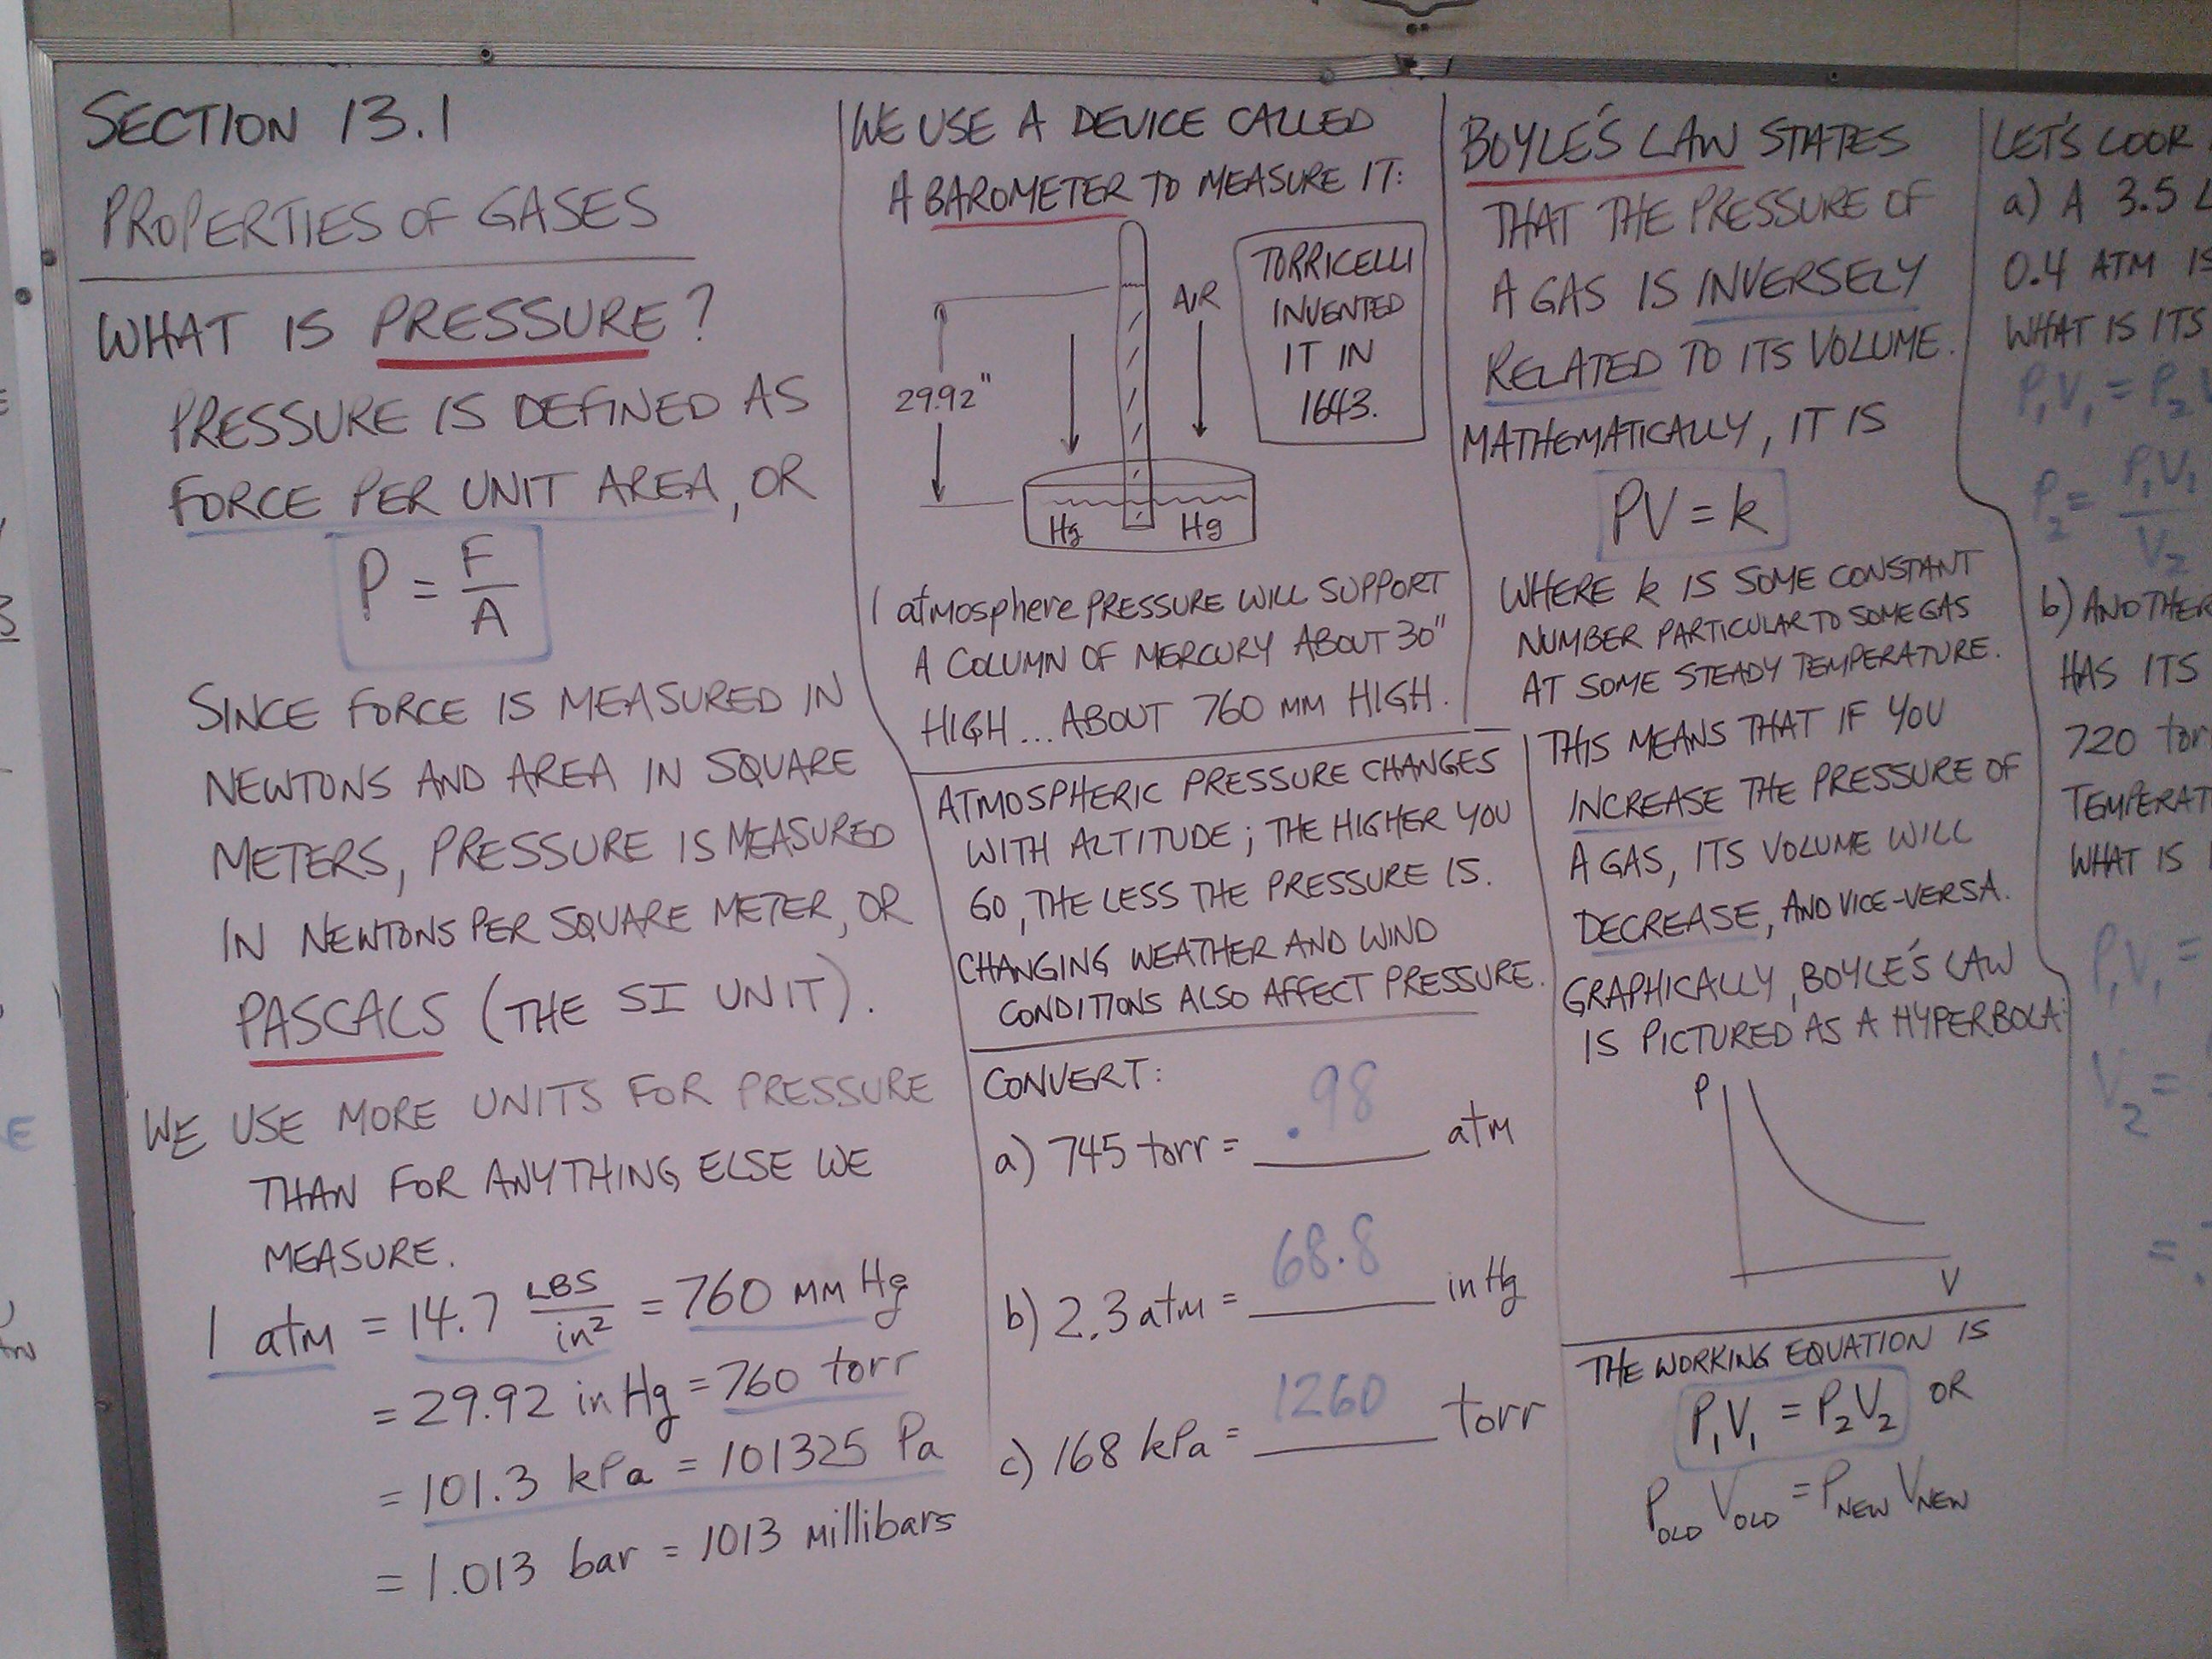 SECTION 13.1
PROPERTIES OF GASES
WHAT IS PRESSURE?
PRESSURE IS DEFINED AS
FORCE PER UNIT AREA, OR
P = F/A
SINCE FORCE IS MEASURED IN
NEWTONS AND AREA IN SQUARE
METERS, PRESSURE IS MEASURED
IN NEWTONS PER SQUARE METER, OR
PASCALS (THE SI UNIT).
WE USE MORE UNITS FOR PRESSURE
THAN FOR ANYTHING ELSE WE
MEASURE.
1 atm = 14.7 LBS/in² = 760 mm Hg
= 29.92 in Hg = 760 torr
= 101.3 kPa = 101325 Pa
= 1.013 bar = 1013 millibars
WE USE A DEVICE CALLED
A BAROMETER TO MEASURE IT:
29.92"
AIR
Hg Hg
TORRICELLI
INVENTED
IT IN
1643.
1 atmosphere PRESSURE WILL SUPPORT
A COLUMN OF MERCURY ABOUT 30"
HIGH... ABOUT 760 MM HIGH.
ATMOSPHERIC PRESSURE CHANGES
WITH ALTITUDE; THE HIGHER YOU
GO, THE LESS THE PRESSURE IS.
CHANGING WEATHER AND WIND
CONDITIONS ALSO AFFECT PRESSURE.
CONVERT:
a) 745 torr = .98 atm
b) 2.3 atm = 68.8 in Hg
c) 168 kPa = 1260 torr
BOYLE'S LAW STATES
THAT THE PRESSURE OF
A GAS IS INVERSELY
RELATED TO ITS VOLUME.
MATHEMATICALLY, IT IS
PV = k
WHERE k IS SOME CONSTANT
NUMBER PARTICULAR TO SOME GAS
AT SOME STEADY TEMPERATURE.
THIS MEANS THAT IF YOU
INCREASE THE PRESSURE OF
A GAS, ITS VOLUME WILL
DECREASE, AND VICE-VERSA.
GRAPHICALLY, BOYLE'S LAW
IS PICTURED AS A HYPERBOLA:
P
V
THE WORKING EQUATION IS
P₁V₁ = P₂V₂ OR
P_OLD V_OLD = P_NEW V_NEW
LET'S LOOK
a) A 3.5
0.4 ATM IS
WHAT IS ITS
P₁V₁ = P₂
P₂ = P₁V₁/V₂
b) ANOTHER
HAS ITS
720 torr
WHAT IS
P₁V₁ =
V₂ =
=